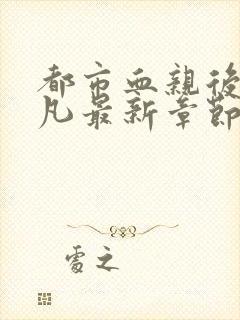 都市血親後
凡最新章節
處之